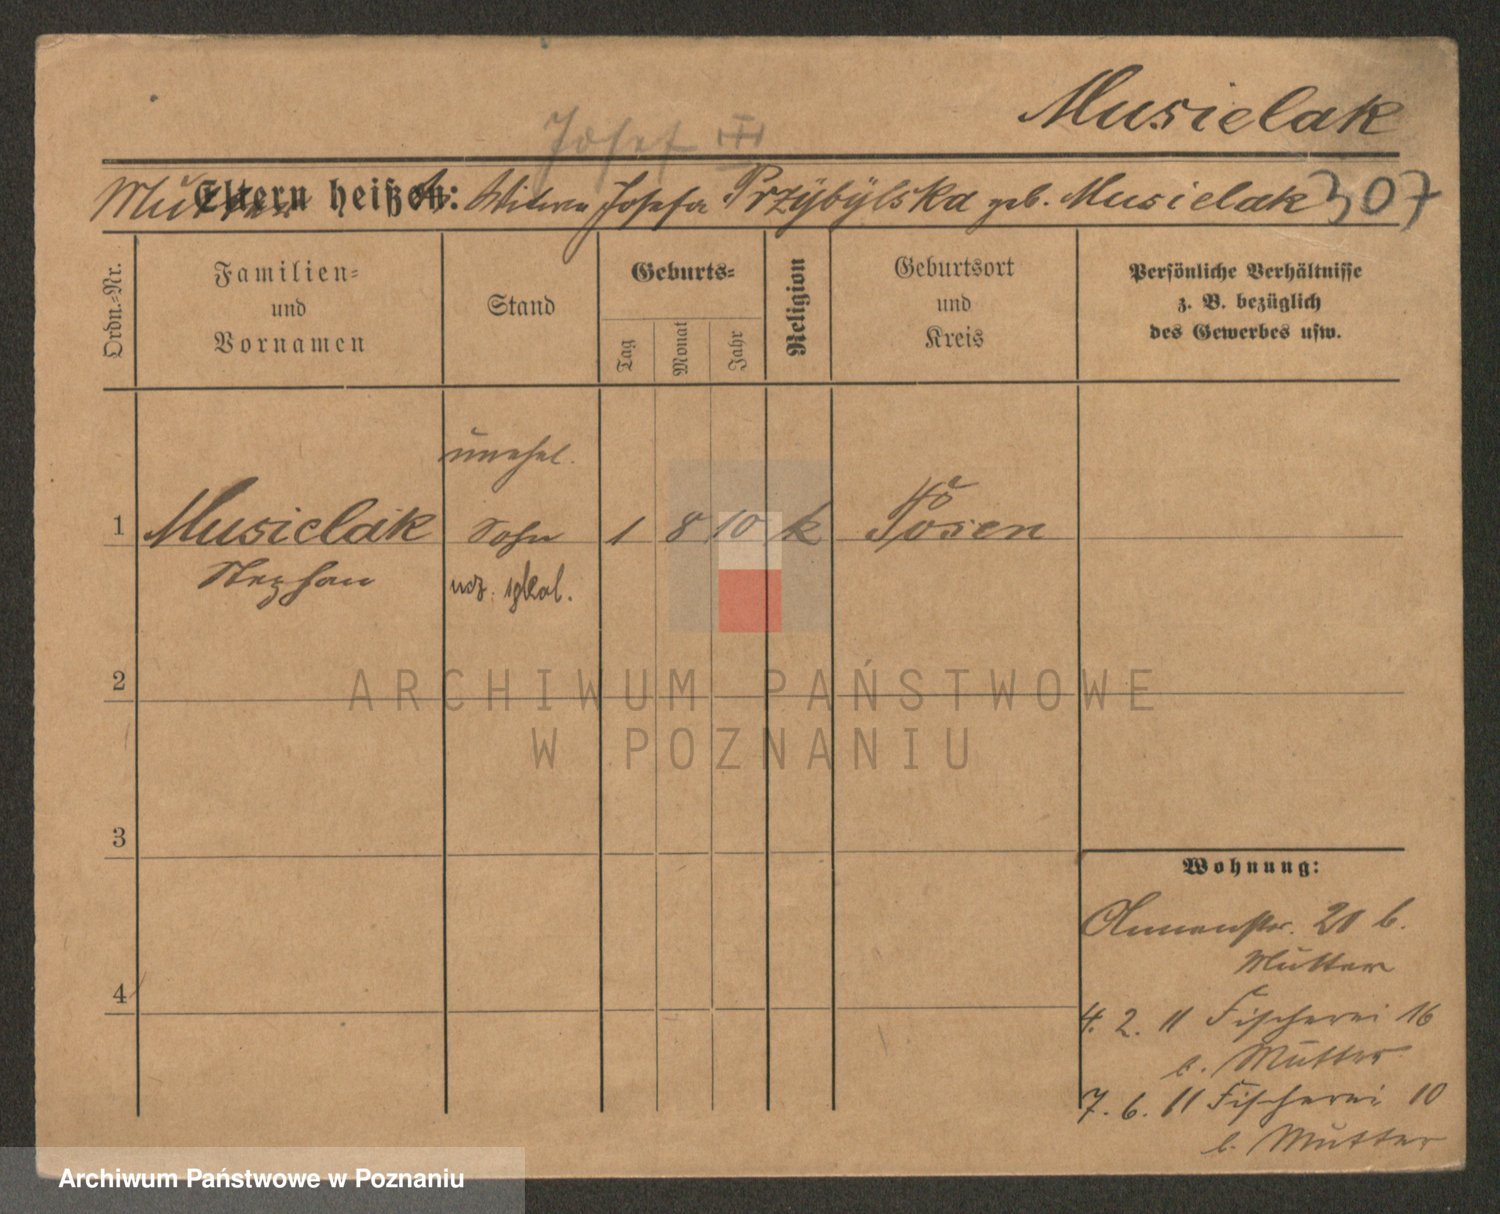 Musielak
Josef III
Eltern heißen:
Mutter Witwe Josefa Przybylska geb. Musielak 307
Ordn.-Nr.
Familien-
und
Vornamen
Stand
Geburts-
Tag
Monat
Jahr
Religion
Geburtsort
und
Kreis
Persönliche Verhältnisse
z. B. bezüglich
des Gewerbes usw.
unehel.
1 Musielak Sohn 1 8 10 k Posen
Stephan
2
ARCHIWUM PAŃSTWOWE
W POZNANIU
3
Wohnung:
20 b.
Mutter
4
4. 2. 11 Fischerei 16
b. Mutter
7. 6. 11 Fischerei 10
b. Mutter
Archiwum Państwowe w Poznaniu